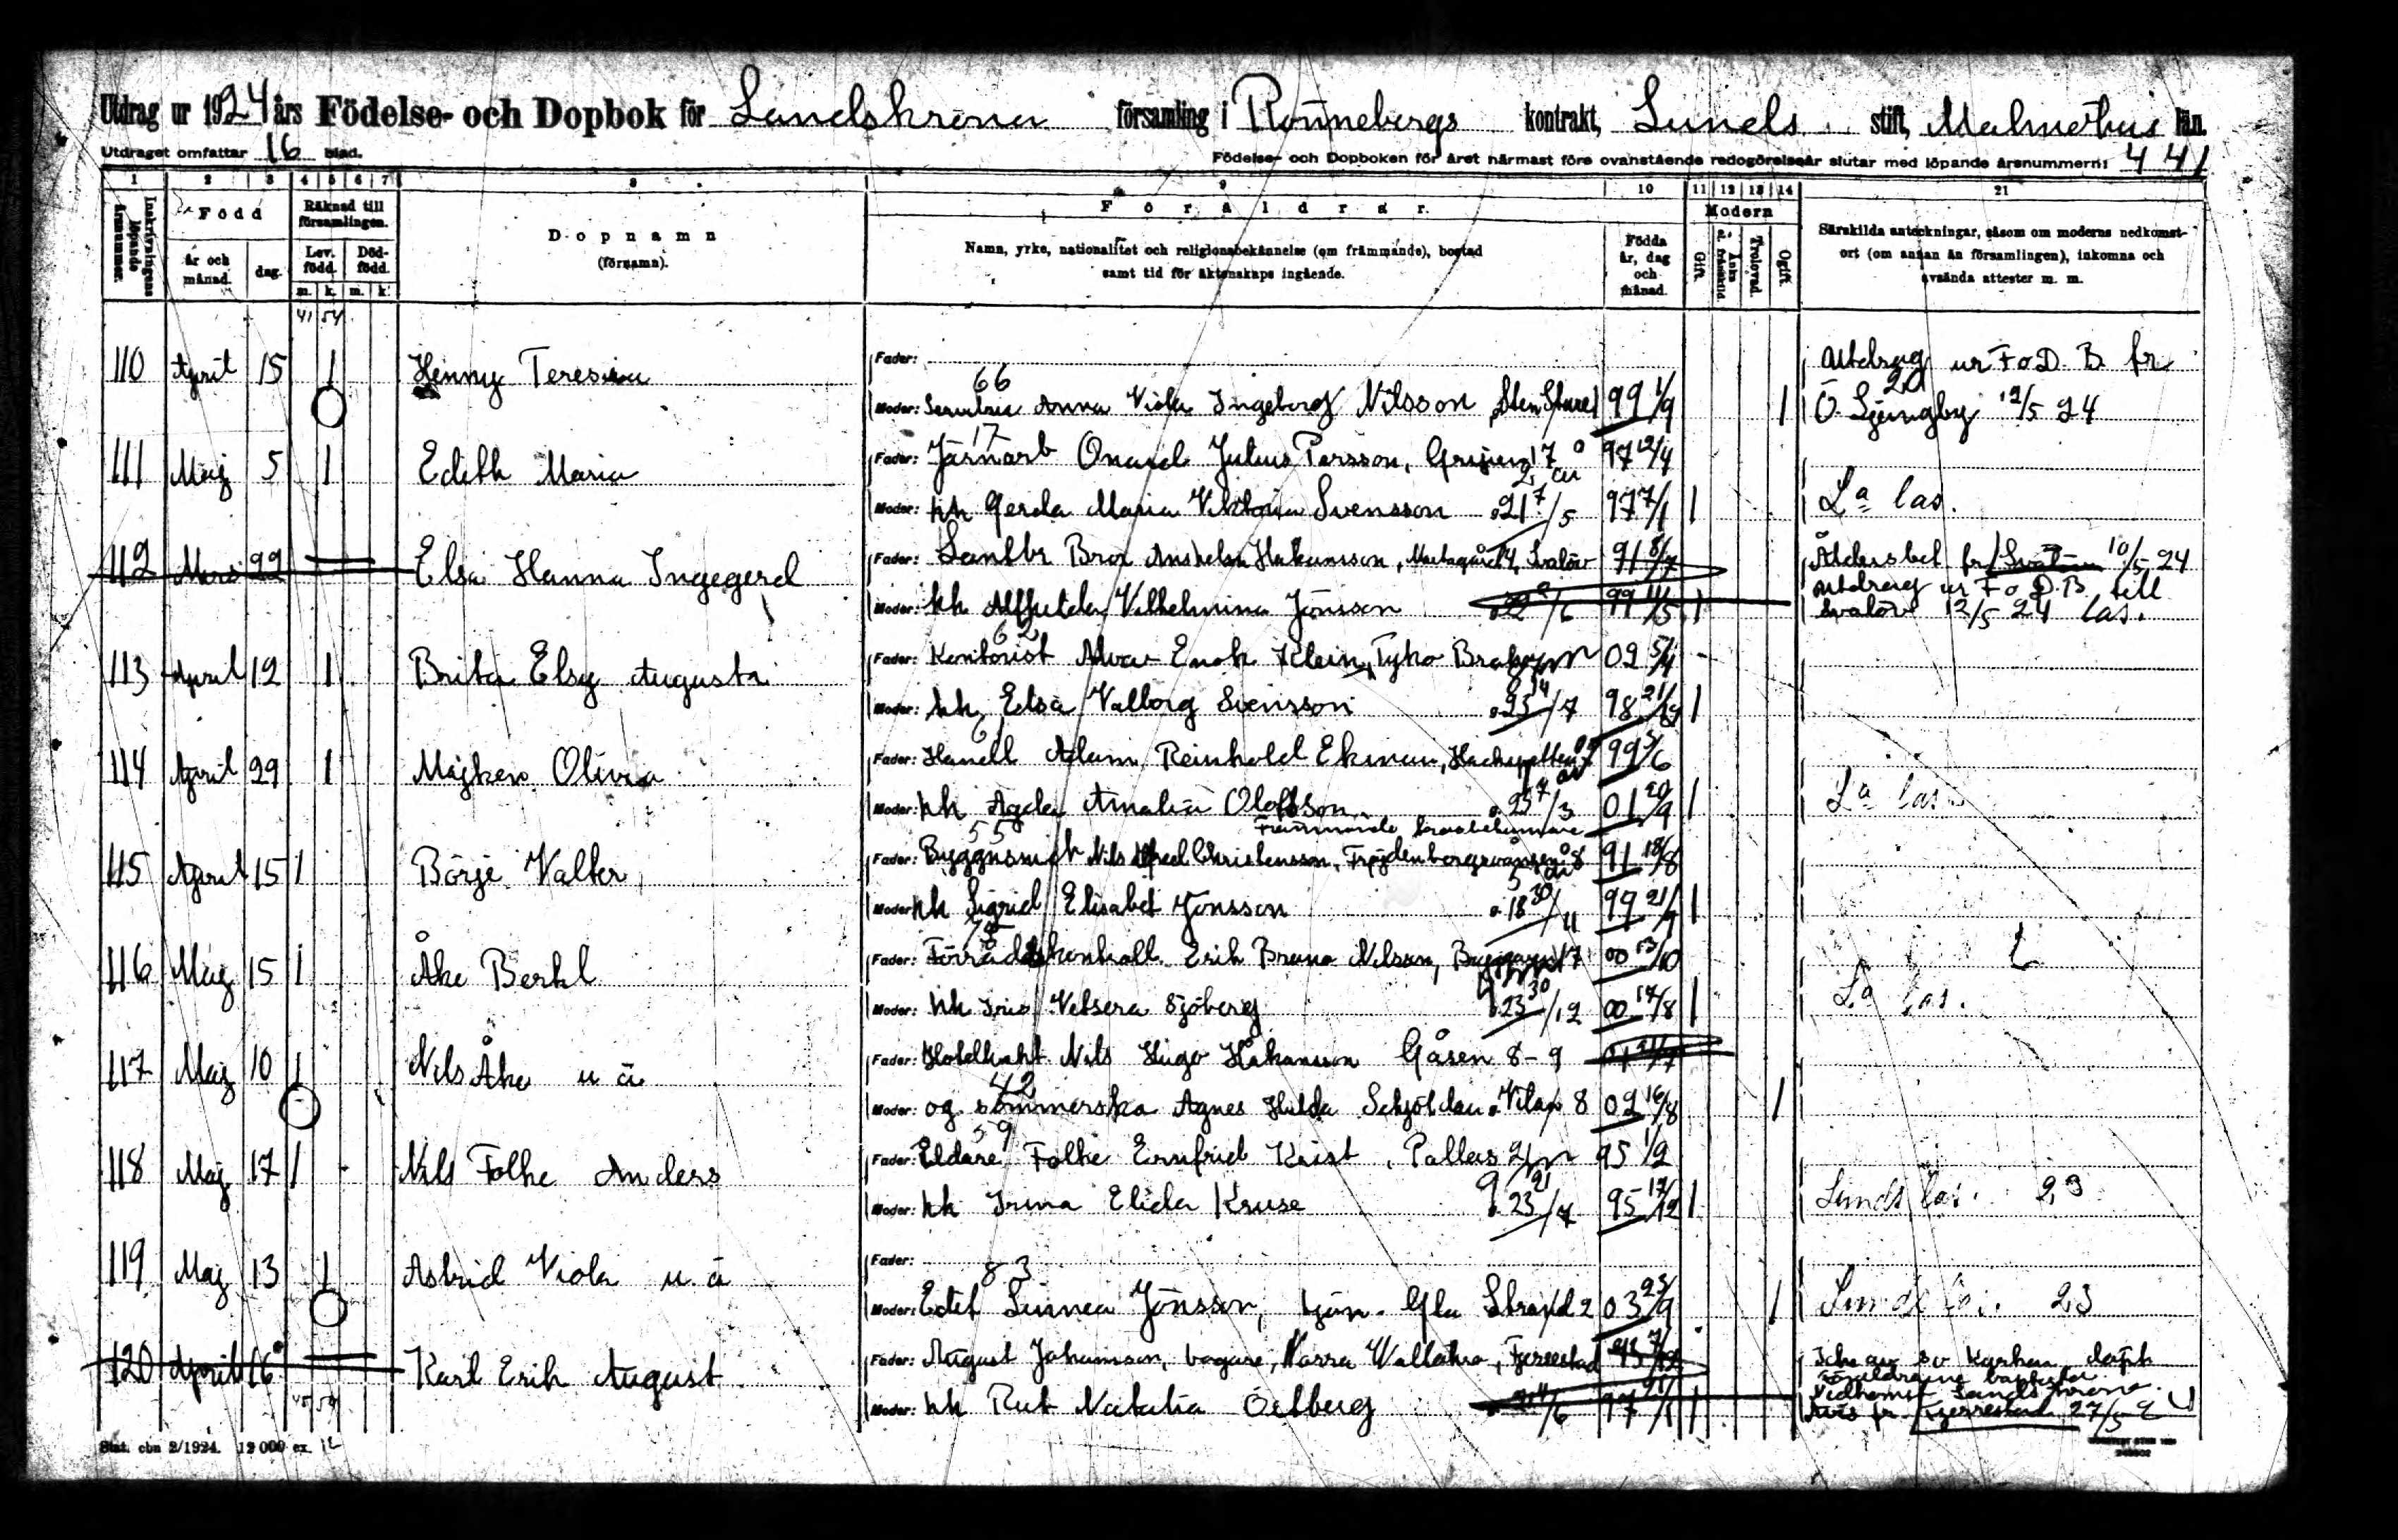 Utdrag ur 1924 års Födelse- och Dopbok för Landskrona församling i Rönnebergs kontrakt, Lunds stift, Malmöhus län.
Utdraget omfattar 16 blad. Födelse- och Dopboken för året närmast före ovanstående redogörelseår slutar med löpande årsnummern: 441
1 2 3 4 5 6 7 8 9 10 11 12 13 14 21
Inskrivningens löpande årsnummer.
Född
år och månad. dag.
Räknad till församlingen.
Lev. född. Död-född.
m. k. m. k.
Dopnamn
(förnamn).
Föräldrar.
Namn, yrke, nationalitet och religionsbekännelse (om främmande), bostad
samt tid för äktenskaps ingående.
Födda år, dag och månad.
Modern
Gift. Änka el. frånskild. Trolovad. Ogift.
Särskilda anteckningar, såsom om moderns nedkomst-
ort (om annan än församlingen), inkomna och
avsända attester m. m.
41 54
110 April 15 1 Henny Teresia Fader: Utdrag ur FoD.B. fr
66
Moder: Anna Viola Ingeborg Nilsson, Sten Sture 1 99 1/9 1 Ö. Ljungby 12/5 24
17
111 Maj 5 1 Edith Maria Fader: Järnarb Julius Persson, Gripen 17 97 12/4
Moder: hh Gerda Maria Viktoria Svensson 21 7/5 97 7/1 1 La las.
112 Mars 22 Elsa Hanna Ingegerd Fader: Lantbr Bror Anshelm Håkansson, Svalöv 91 8/7 Åldersbet fr Svalöv 10/5 24
Utdrag ur FoD.B. till
Moder: hh Alfhilda Vilhelmina Jönsson 22 2/6 99 11/5 1 Svalöv 12/5 24 las.
62
113 April 12 1 Brita Elsy Augusta Fader: Kontorist Enok Klein, Tyko Brahe 02 5/4
Moder: hh Elsa Valborg Svensson 23 14/7 98 21 1
114 April 29 1 Majken Olivia Fader: Handl Adam Reinhold Ekman, 99 5/6
Moder: hh Agda Amalia Olofsson 23 7/3 01 20/9 1 La las
55 Främmande trosbekännare
115 April 15 1 Börje Valter Fader: Nils Alfred Christensson, Fröjdenborgsvången 8 91 18/8
Moder: hh Sigrid Elisabet Jönsson 18 30/11 99 21 1
116 Maj 15 1 Åke Bertil Fader: Förrådskontroll. Erik Bruno Nilsson, 17 00 13/10
Moder: hh Iris Vetsera Sjöberg 23 30/12 00 17/8 1 La las.
117 Maj 10 1 Nils Åke u ä Fader: Nils Hugo Håkansson Gåsen 8-9
42
Moder: og. sömmerska Agnes Hilda Schjöldau Vilan 8 02 16/8 1
59
118 Maj 17 1 Nils Folke Anders Fader: Eldare Folke Ernfrid Krist, Pallas 21 95 1/2
Moder: hh Irma Elida Kruse 23 21/7 95 17/12 1 Lunds las. 23
119 Maj 13 1 Astrid Viola u. ä Fader:
83
Moder: Edit Linnea Jönsson, tjän. Gla Strand 2 03 25/9 1 Lunds las. 23
120 April 16 Karl Erik August Fader: August Johansson, bagare, Norra Vallåkra, Fjerrestad Icke av sv kyrkan döpt
föräldrarne baptister
45 59 Nedkomst Landskrona.
Moder: hh Rut Natalia Östberg 97 21/1 1 fr Fjerrestad 27/5 24
Stat. cbn 2/1924. 12 000 ex. 12